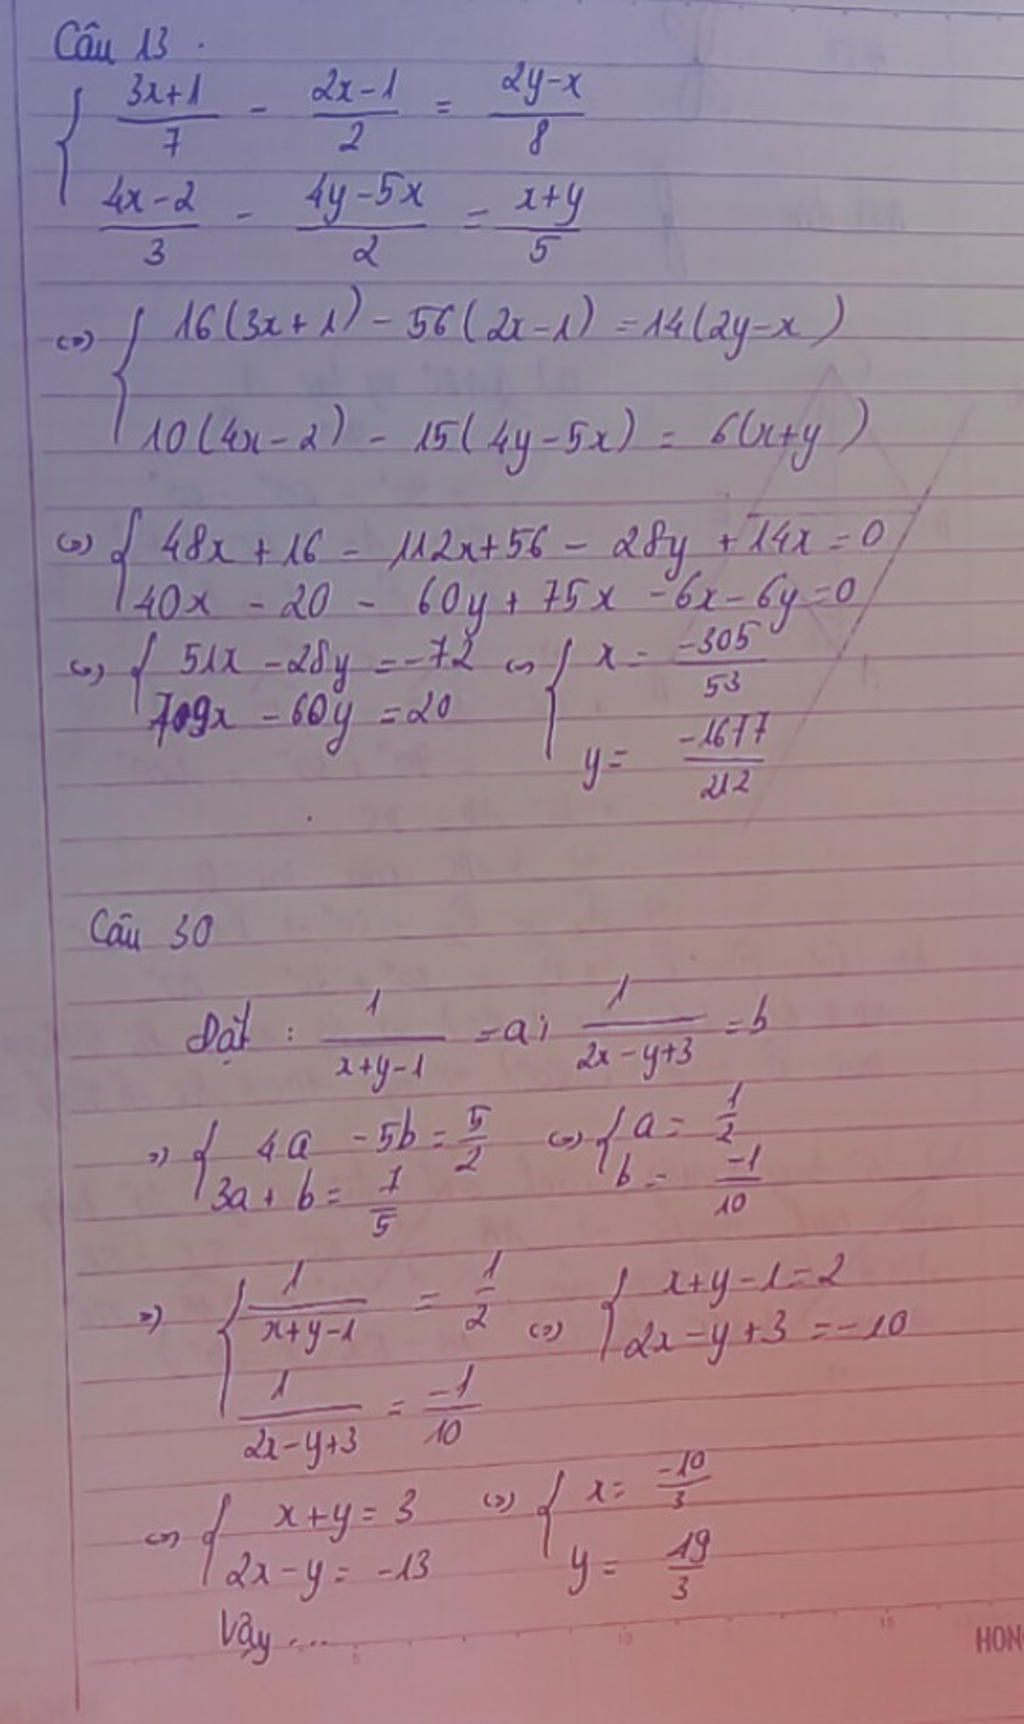 Câu 13.
{ (3x+1)/7 - (2x-1)/2 = (2y-x)/8
(4x-2)/3 - (4y-5x)/2 = (x+y)/5
<=> { 16(3x+1) - 56(2x-1) = 14(2y-x)
10(4x-2) - 15(4y-5x) = 6(x+y)
<=> { 48x + 16 - 112x + 56 - 28y + 14x = 0
40x - 20 - 60y + 75x - 6x - 6y = 0
<=> { 51x - 28y = -72 <=> { x = -305/53
109x - 60y = 20
y = -1677/212
Câu 30
Đặt : 1/(x+y-1) = a ; 1/(2x-y+3) = b
=> { 4a - 5b = 5/2 <=> { a = 1/2
3a + b = 7/5 b = -1/10
=> { 1/(x+y-1) = 1/2 <=> { x+y-1 = 2
2x-y+3 = -10
1/(2x-y+3) = -1/10
<=> { x+y = 3 <=> { x = -10/3
2x-y = -13 y = 19/3
Vậy ...
5 10 15
HON